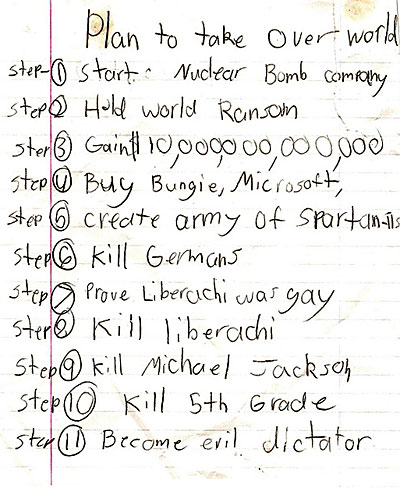 Plan to take over world
step-① Start: Nuclear Bomb company
step② Hold world Ransom
step③ Gain $10,000,000,000,000
step④ Buy Bungie, Microsoft,
step⑤ create army of spartan-IIs
step⑥ Kill Germans
step⑦ Prove Liberachi was gay
step⑧ Kill liberachi
step⑨ Kill Michael Jackson
step⑩ Kill 5th Grade
step⑪ Become evil dictator